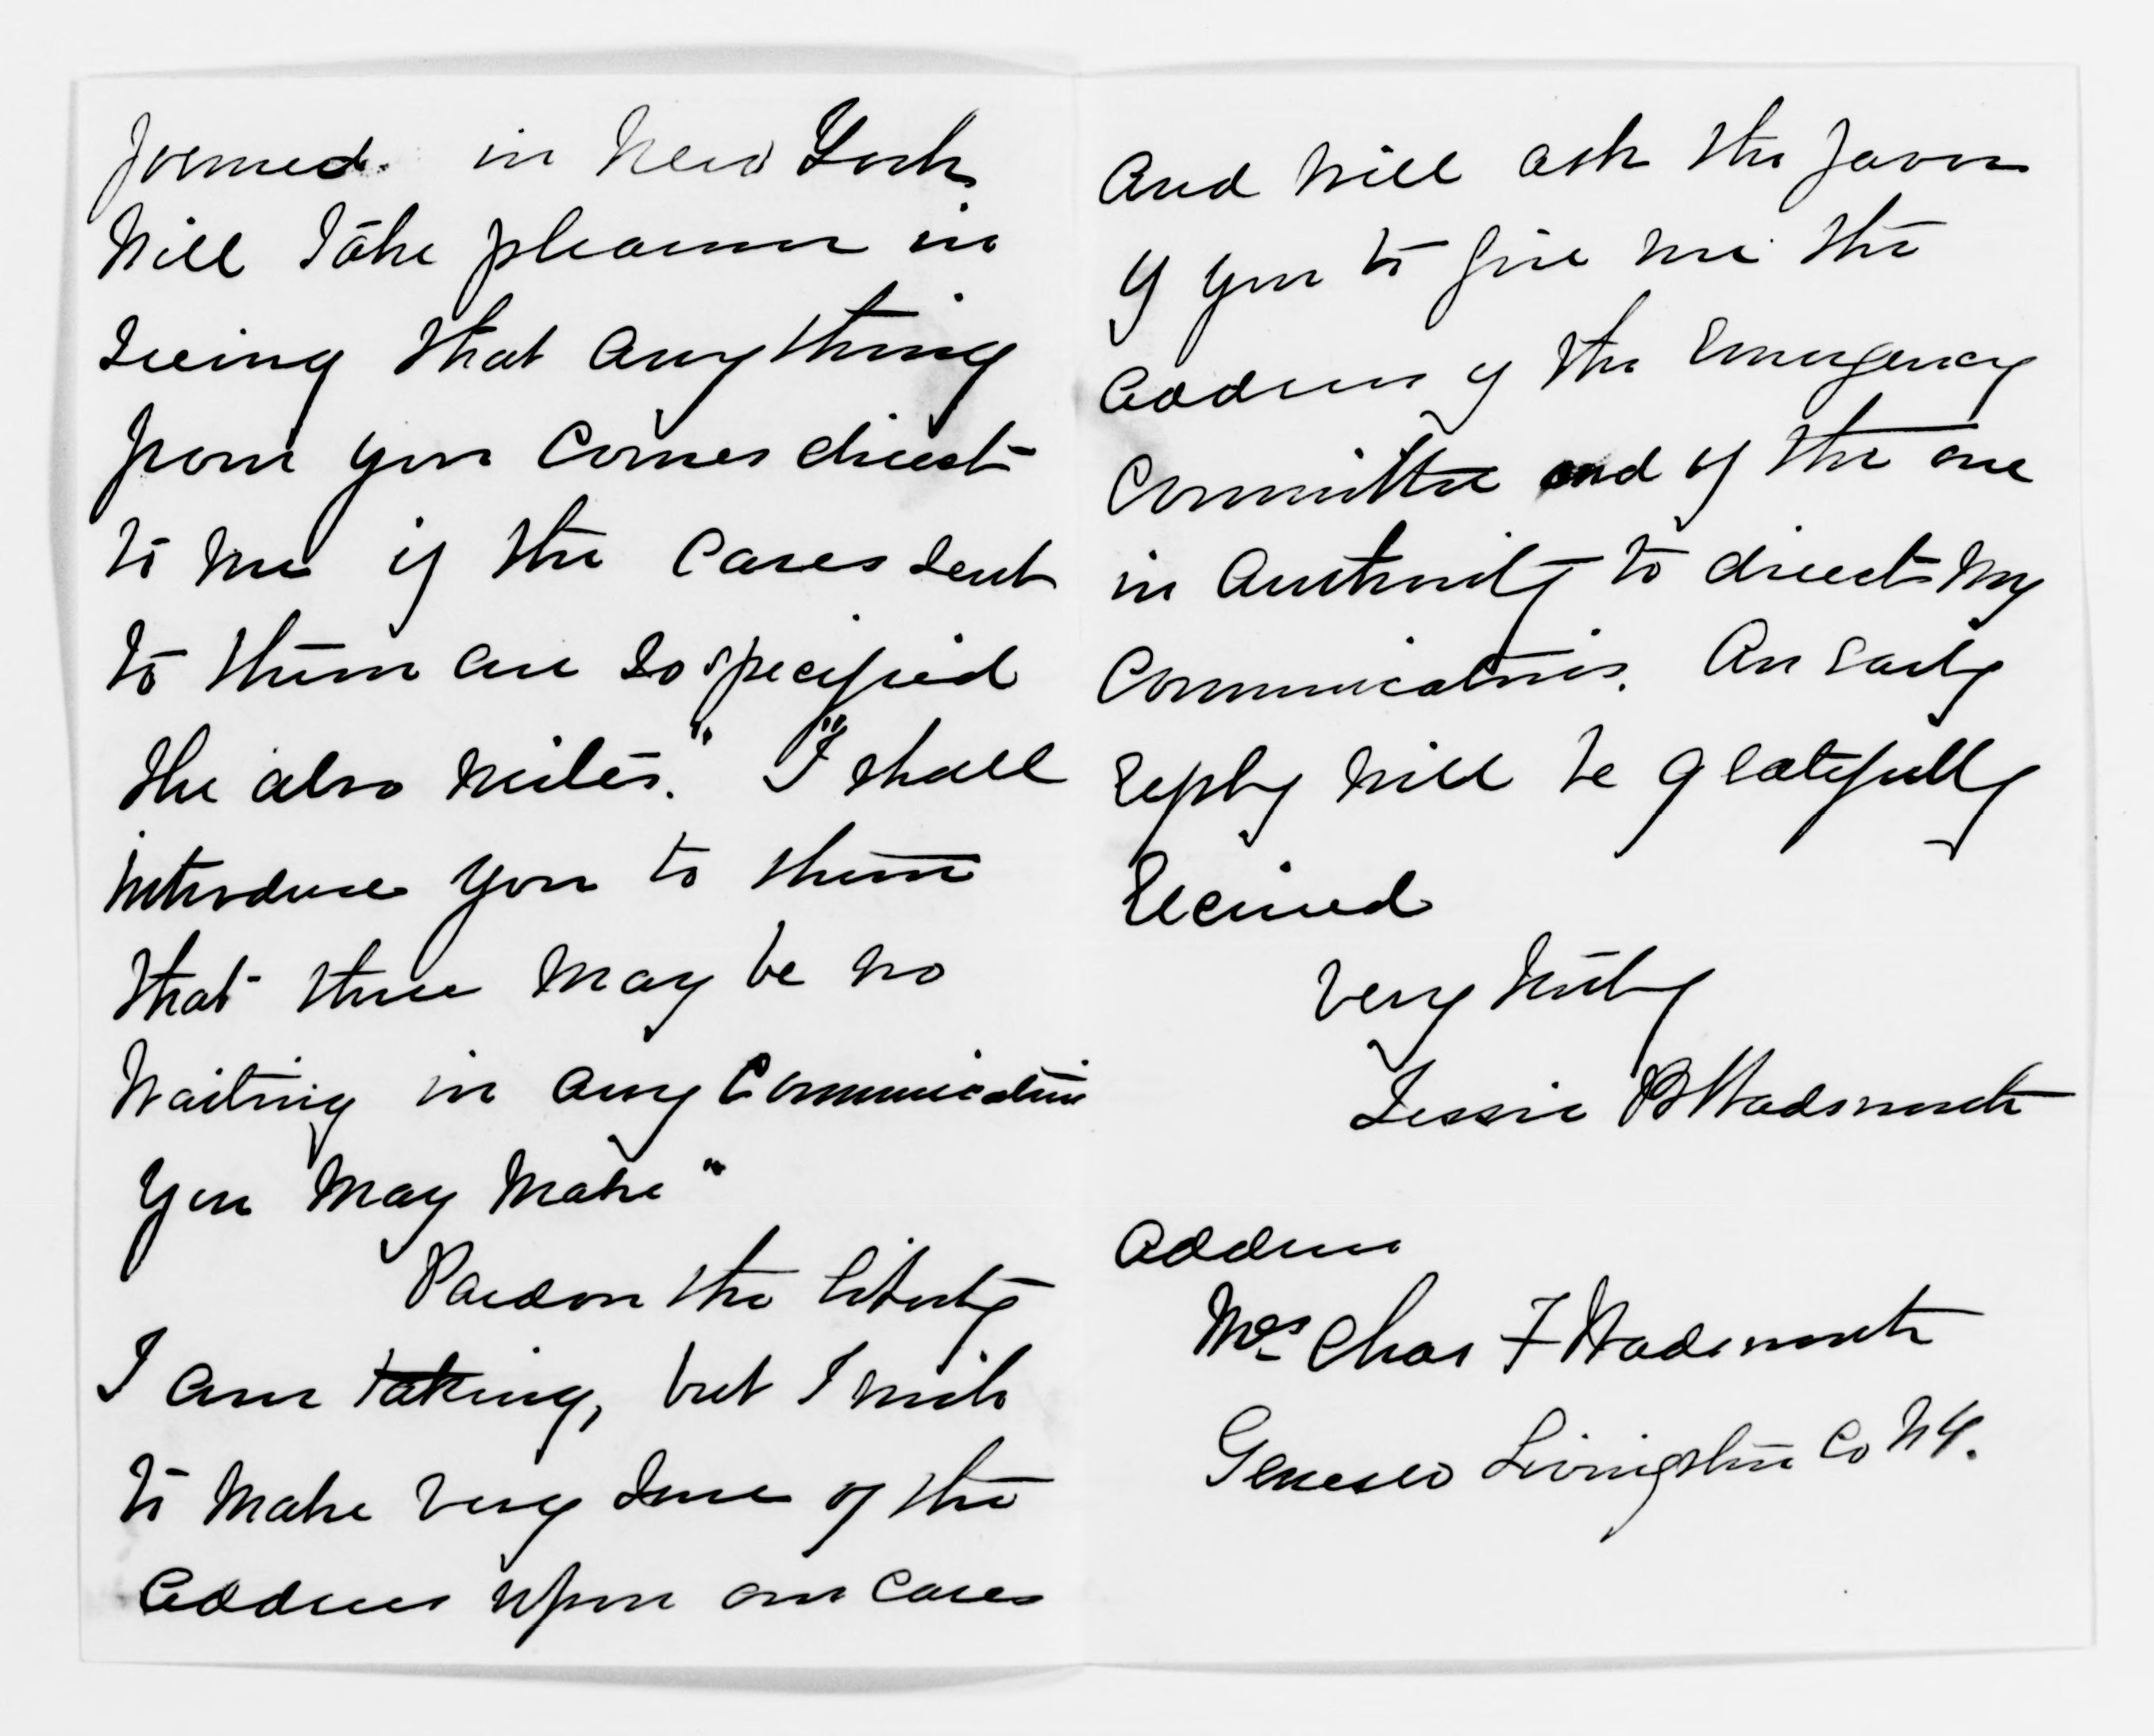 formed. in New York
Will Take pleasure in
seeing that anything
from you comes direct
to me if the cases sent
to them are so specified
She also writes." "I shall
introduce you to them
that there may be no
waiting in any communication
you may make"
Pardon the liberty
I am taking, but I wish
to make very sure of the
address upon our cases
and will ask the favor
of you to give me the
address of the Emergency
Committee and of the one
in authority to direct my
communications. An early
reply will be gratefully
received
Very truly
Jessie B Wadsworth
Address
Mrs Chas F Wadsworth
Geneseo Livingston Co NY.